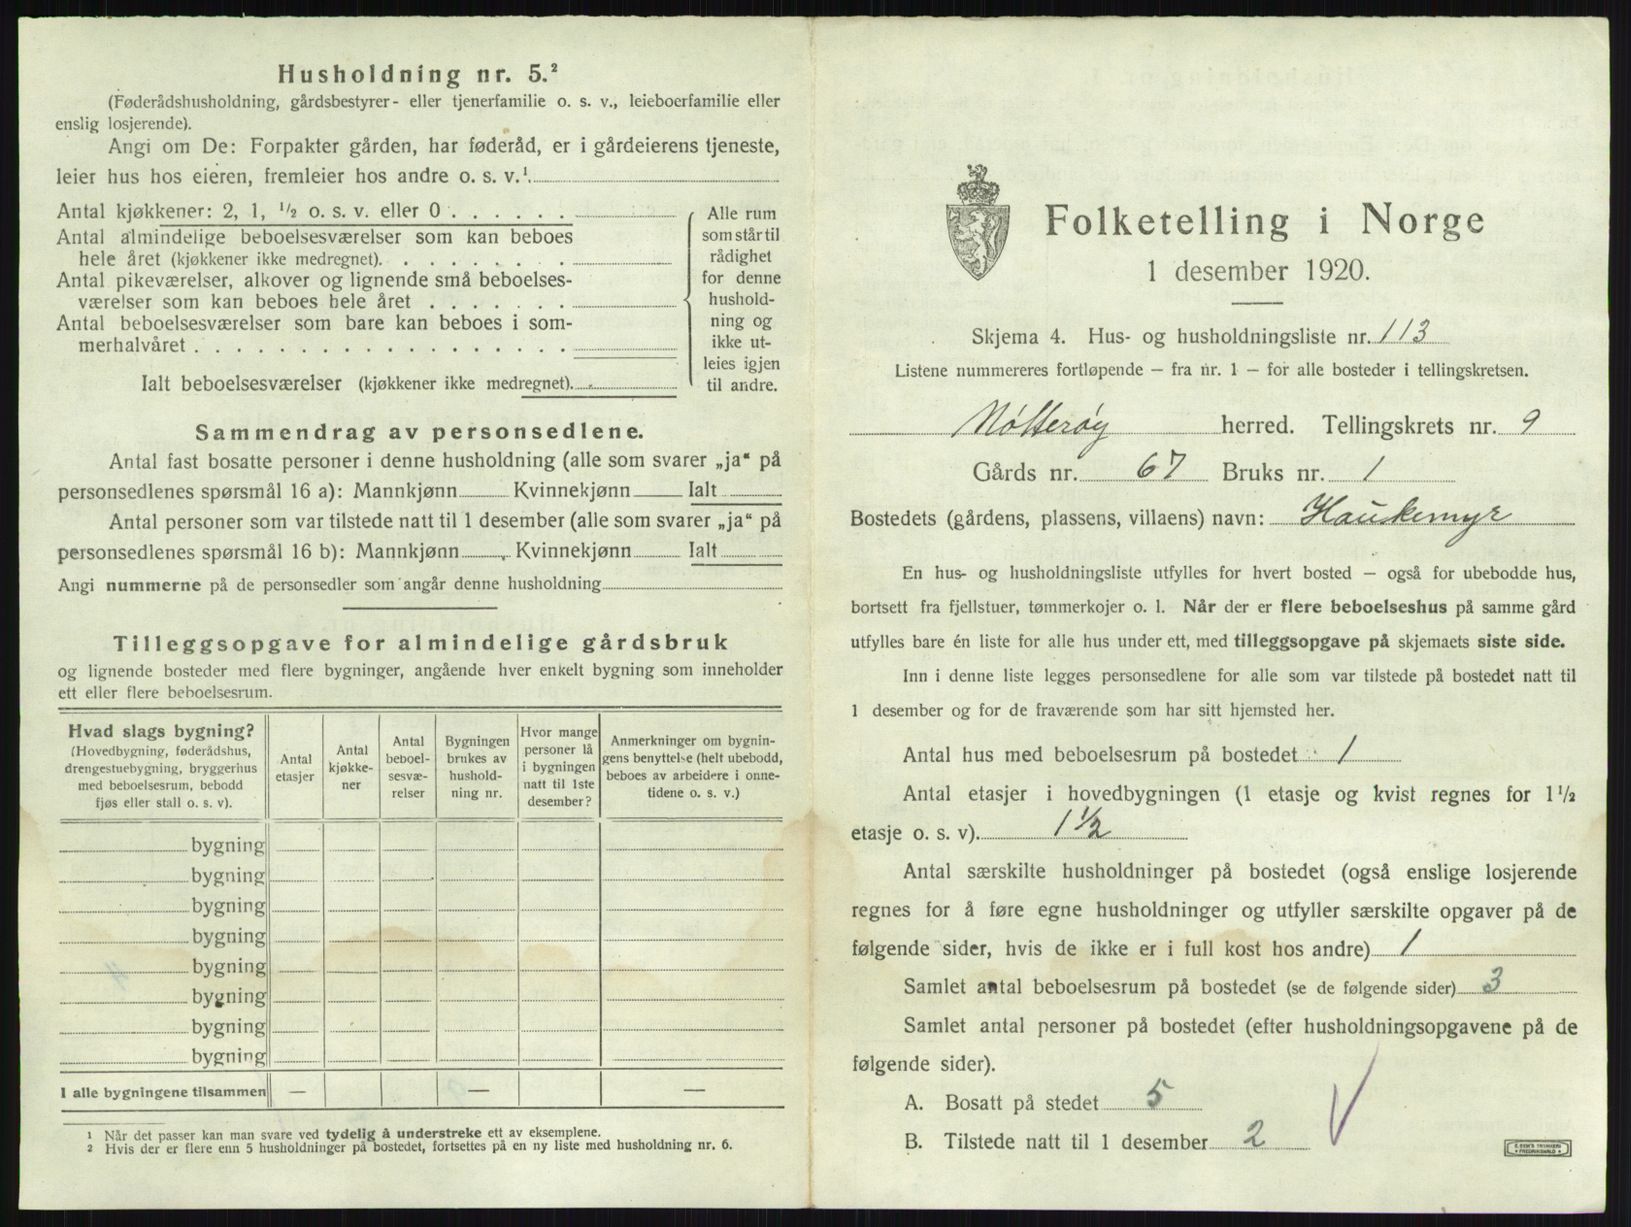 Husholdning nr. 5.²
(Føderådshusholdning, gårdsbestyrer- eller tjenerfamilie o. s. v., leieboerfamilie eller
enslig losjerende).
Angi om De: Forpakter gården, har føderåd, er i gårdeierens tjeneste,
leier hus hos eieren, fremleier hos andre o. s. v.¹
Antal kjøkkener: 2, 1, ½ o. s. v. eller 0 . . . . . .
Antal almindelige beboelsesværelser som kan beboes
hele året (kjøkkener ikke medregnet). . . . . . . .
Antal pikeværelser, alkover og lignende små beboelses-
værelser som kan beboes hele året . . . . . . .
Antal beboelsesværelser som bare kan beboes i som-
merhalvåret . . . . . . . . . . . . . . . . . .
Ialt beboelsesværelser (kjøkkener ikke medregnet). .
Alle rum
som står til
rådighet
for denne
hushold-
ning og
ikke ut-
leies igjen
til andre.
Sammendrag av personsedlene.
Antal fast bosatte personer i denne husholdning (alle som svarer „ja“ på
personsedlenes spørsmål 16 a): Mannkjønn Kvinnekjønn Ialt
Antal personer som var tilstede natt til 1 desember (alle som svarer „ja“ på
personsedlenes spørsmål 16 b): Mannkjønn Kvinnekjønn Ialt
Angi nummerne på de personsedler som angår denne husholdning
Tilleggsopgave for almindelige gårdsbruk
og lignende bosteder med flere bygninger, angående hver enkelt bygning som inneholder
ett eller flere beboelsesrum.
Hvad slags bygning?
(Hovedbygning, føderådshus,
drengestuebygning, bryggerhus
med beboelsesrum, bebodd
fjøs eller stall o. s. v.).
Antal
etasjer
Antal
kjøkke-
ner
Antal
beboel-
sesvæ-
relser
Bygningen
brukes av
hushold-
ning nr.
Hvor mange
personer lå
i bygningen
natt til 1ste
desember?
Anmerkninger om bygnin-
gens benyttelse (helt ubebodd,
beboes av arbeidere i onne-
tidene o. s. v.)
bygning
bygning
bygning
bygning
bygning
bygning
bygning
bygning
I alle bygningene tilsammen — — —
¹ Når det passer kan man svare ved tydelig å understreke ett av eksemplene.
² Hvis der er flere enn 5 husholdninger på bostedet, fortsettes på en ny liste med husholdning nr. 6.
Folketelling i Norge
1 desember 1920.
Skjema 4. Hus- og husholdningsliste nr. 113
Listene nummereres fortløpende — fra nr. 1 — for alle bosteder i tellingskretsen.
Nøtterøy herred. Tellingskrets nr. 9
Gårds nr. 67 Bruks nr. 1
Bostedets (gårdens, plassens, villaens) navn: Haukemyr
En hus- og husholdningsliste utfylles for hvert bosted — også for ubebodde hus,
bortsett fra fjellstuer, tømmerkojer o. l. Når der er flere beboelseshus på samme gård
utfylles bare én liste for alle hus under ett, med tilleggsopgave på skjemaets siste side.
Inn i denne liste legges personsedlene for alle som var tilstede på bostedet natt til
1 desember og for de fraværende som har sitt hjemsted her.
Antal hus med beboelsesrum på bostedet 1
Antal etasjer i hovedbygningen (1 etasje og kvist regnes for 1½
etasje o. s. v). 1½
Antal særskilte husholdninger på bostedet (også enslige losjerende
regnes for å føre egne husholdninger og utfyller særskilte opgaver på de
følgende sider, hvis de ikke er i full kost hos andre) 1
Samlet antal beboelsesrum på bostedet (se de følgende sider) 3
Samlet antal personer på bostedet (efter husholdningsopgavene på de
følgende sider).
A. Bosatt på stedet 5
B. Tilstede natt til 1 desember 2